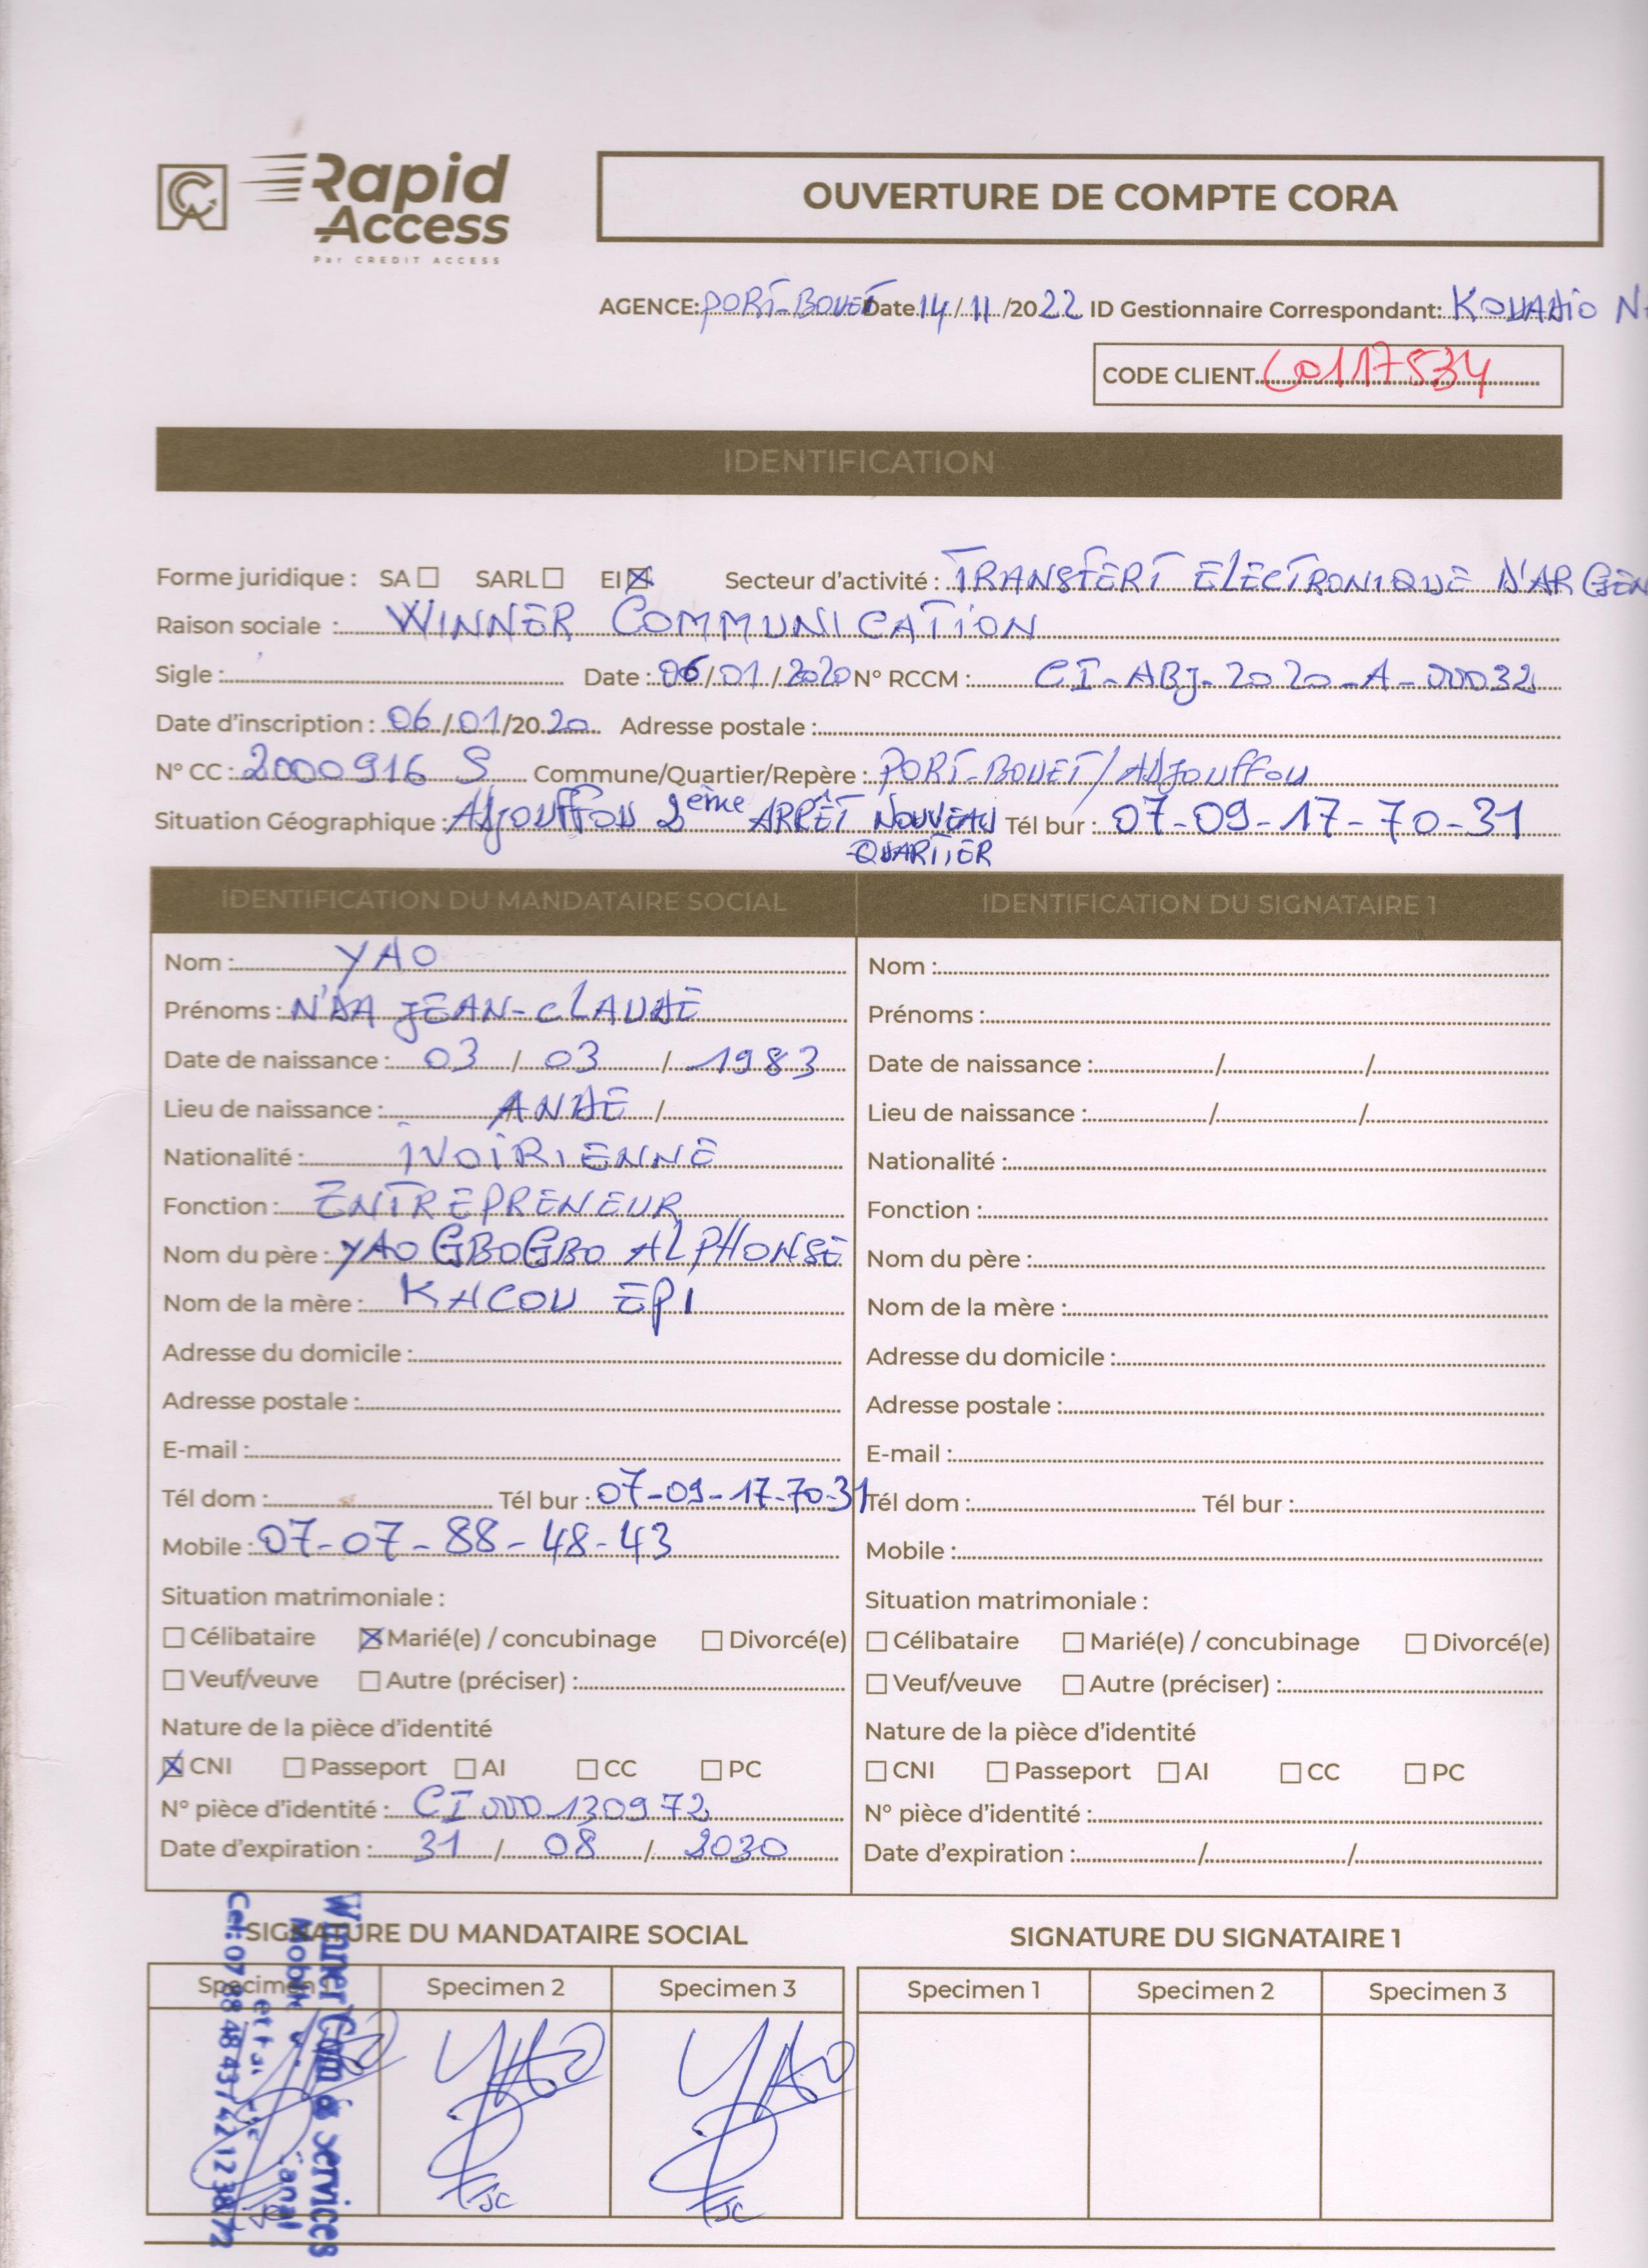 Rapid
Access
Par CREDIT ACCESS
OUVERTURE DE COMPTE CORA
AGENCE: PORT-BOUET Date 14/11/2022 ID Gestionnaire Correspondant: KOUADIO N
CODE CLIENT 60117534
IDENTIFICATION
Forme juridique : SA ☐ SARL ☐ EI ☒ Secteur d'activité : TRANSFERT ELECTRONIQUE D'ARGEN
Raison sociale : WINNER COMMUNICATION
Sigle : Date : 06/01/2020 N° RCCM : CI-ABJ-2020-A-00032
Date d'inscription : 06/01/2020 Adresse postale :
N° CC : 2000916 S Commune/Quartier/Repère : PORT-BOUET/Adjouffou
Situation Géographique : Adjouffou 2ème ARRÊT NOUVEAU QUARTIER Tél bur : 07-09-17-70-31
IDENTIFICATION DU MANDATAIRE SOCIAL
Nom : YAO
Prénoms : N'DA JEAN-CLAUDE
Date de naissance : 03/03/1983
Lieu de naissance : ANDE /
Nationalité : IVOIRIENNE
Fonction : ENTREPRENEUR
Nom du père : YAO GBOGBO ALPHONSE
Nom de la mère : KACOU EPI
Adresse du domicile :
Adresse postale :
E-mail :
Tél dom : Tél bur : 07-09-17-70-31
Mobile : 07-07-88-48-43
Situation matrimoniale :
☐ Célibataire ☒ Marié(e) / concubinage ☐ Divorcé(e)
☐ Veuf/veuve ☐ Autre (préciser) :
Nature de la pièce d'identité
☒ CNI ☐ Passeport ☐ AI ☐ CC ☐ PC
N° pièce d'identité : CI000130972
Date d'expiration : 31/08/2030
IDENTIFICATION DU SIGNATAIRE 1
Nom :
Prénoms :
Date de naissance : / /
Lieu de naissance : / /
Nationalité :
Fonction :
Nom du père :
Nom de la mère :
Adresse du domicile :
Adresse postale :
E-mail :
Tél dom : Tél bur :
Mobile :
Situation matrimoniale :
☐ Célibataire ☐ Marié(e) / concubinage ☐ Divorcé(e)
☐ Veuf/veuve ☐ Autre (préciser) :
Nature de la pièce d'identité
☐ CNI ☐ Passeport ☐ AI ☐ CC ☐ PC
N° pièce d'identité :
Date d'expiration : / /
SIGNATURE DU MANDATAIRE SOCIAL
Specimen 1 Specimen 2 Specimen 3
YAO YAO
JC JC
Winner Com & services
Cel: 07 88 48 43 / 42 12 38 72
SIGNATURE DU SIGNATAIRE 1
Specimen 1 Specimen 2 Specimen 3